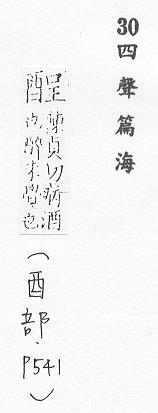 30四聲篇海
酲陳貞切病酒
也醉未覺也
(酉部.P541)